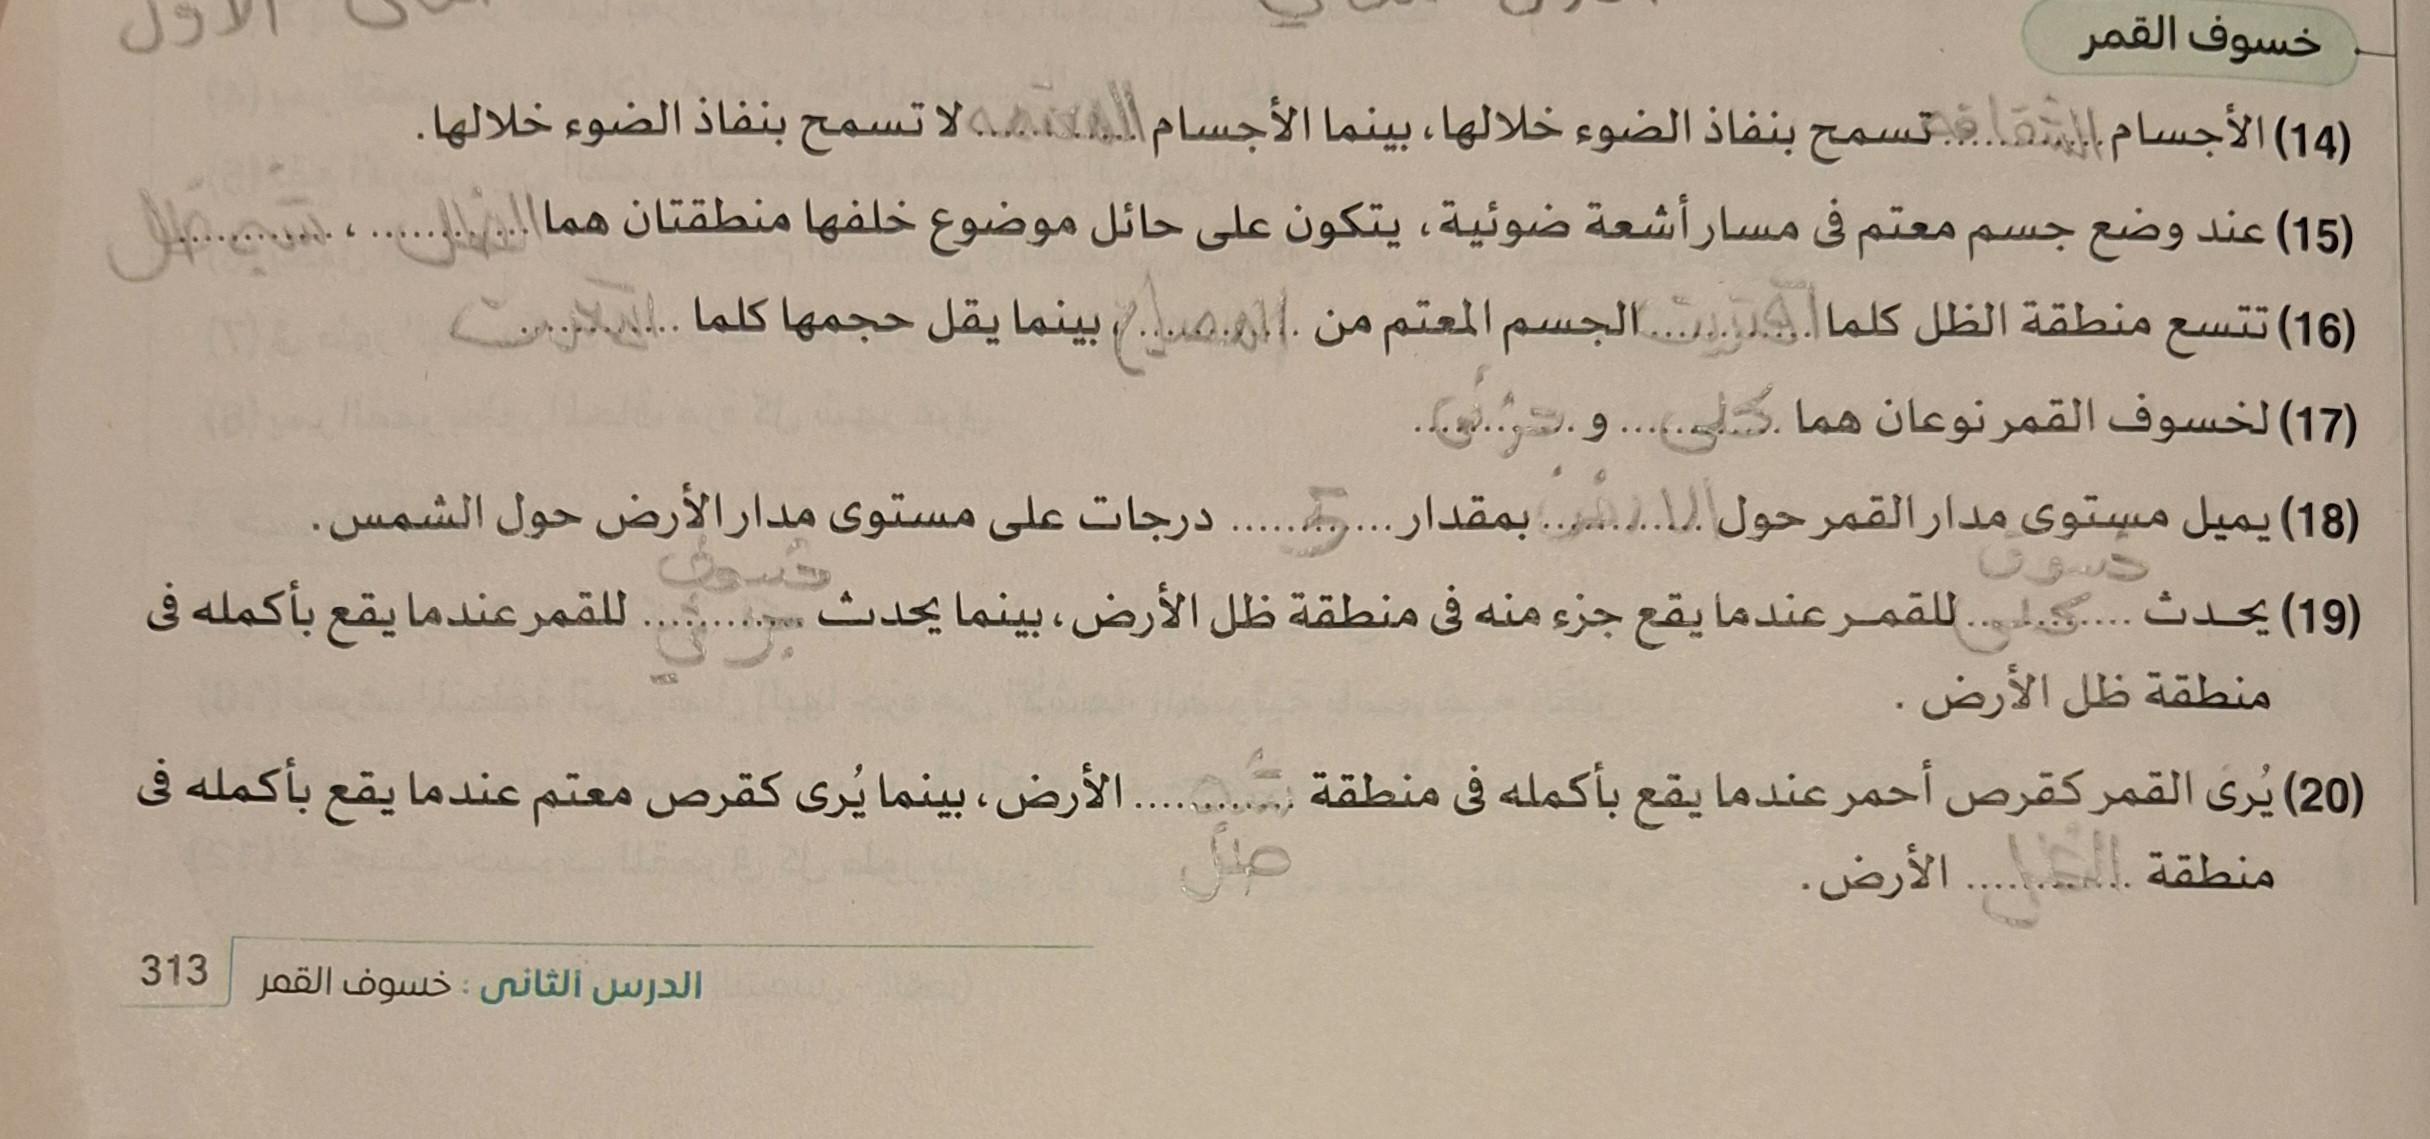 الأول
خسوف القمر
(14) الأجسام الشفافه تسمح بنفاذ الضوء خلالها، بينما الأجسام المعتمه لا تسمح بنفاذ الضوء خلالها.
(15) عند وضع جسم معتم فى مسار أشعة ضوئية، يتكون على حائل موضوع خلفها منطقتان هما الظل ، شبه الظل
(16) تتسع منطقة الظل كلما اقتربت الجسم المعتم من المصباح، بينما يقل حجمها كلما ابتعدت
(17) لخسوف القمر نوعان هما كلى و جزئى
(18) يميل مستوى مدار القمر حول الارض بمقدار 5 درجات على مستوى مدار الأرض حول الشمس.
(19) يحدث خسوف كلى للقمر عندما يقع جزء منه فى منطقة ظل الأرض، بينما يحدث خسوف جزئي للقمر عندما يقع بأكمله فى
منطقة ظل الأرض.
(20) يُرى القمر كقرص أحمر عندما يقع بأكمله فى منطقة شبه ضل الأرض، بينما يُرى كقرص معتم عندما يقع بأكمله فى
منطقة الظل الأرض.
الدرس الثانى : خسوف القمر 313